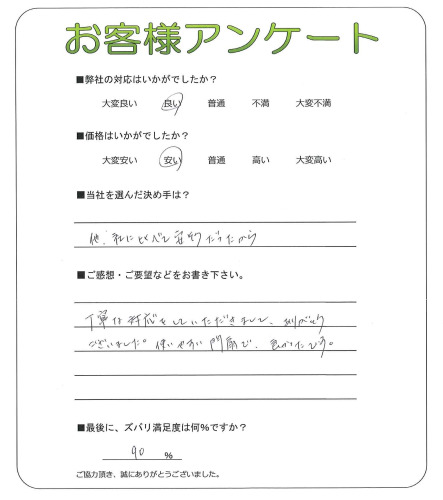 お客様アンケート
■弊社の対応はいかがでしたか？
大変良い 良い 普通 不満 大変不満
■価格はいかがでしたか？
大変安い 安い 普通 高い 大変高い
■当社を選んだ決め手は？
他社に比べて安そうだったから
■ご感想・ご要望などをお書き下さい。
丁寧な対応をしていただきまして、ありがとう
ございました。使いやすい門扉で、良かったです。
■最後に、ズバリ満足度は何%ですか？
90 %
ご協力頂き、誠にありがとうございました。